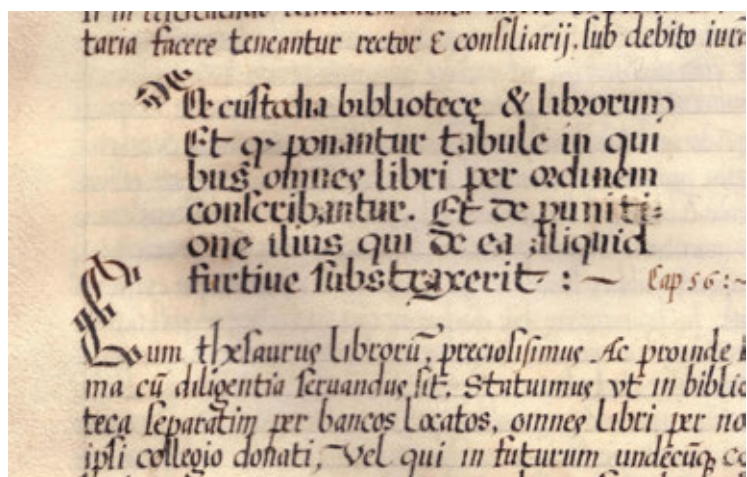 taria facere teneantur rector & consiliarij. sub debito iura
De custodia bibliotecę & librorum
Et qꝫ ponantur tabule in qui
bus omnes libri per ordinem
conscribantur. Et de puniti-
one ilius qui de ea aliquid
furtiue substraxerit : ~ Cap 56 : ~
Cum thesaurus librorū, preciosisimus Ac proinde
ma cū diligentia seruandus sit. Statuimus vt in biblio
teca separatim per bancos locatos, omnes libri per no
ipsi collegio donati, Vel qui in futurum undecūqꝫ co